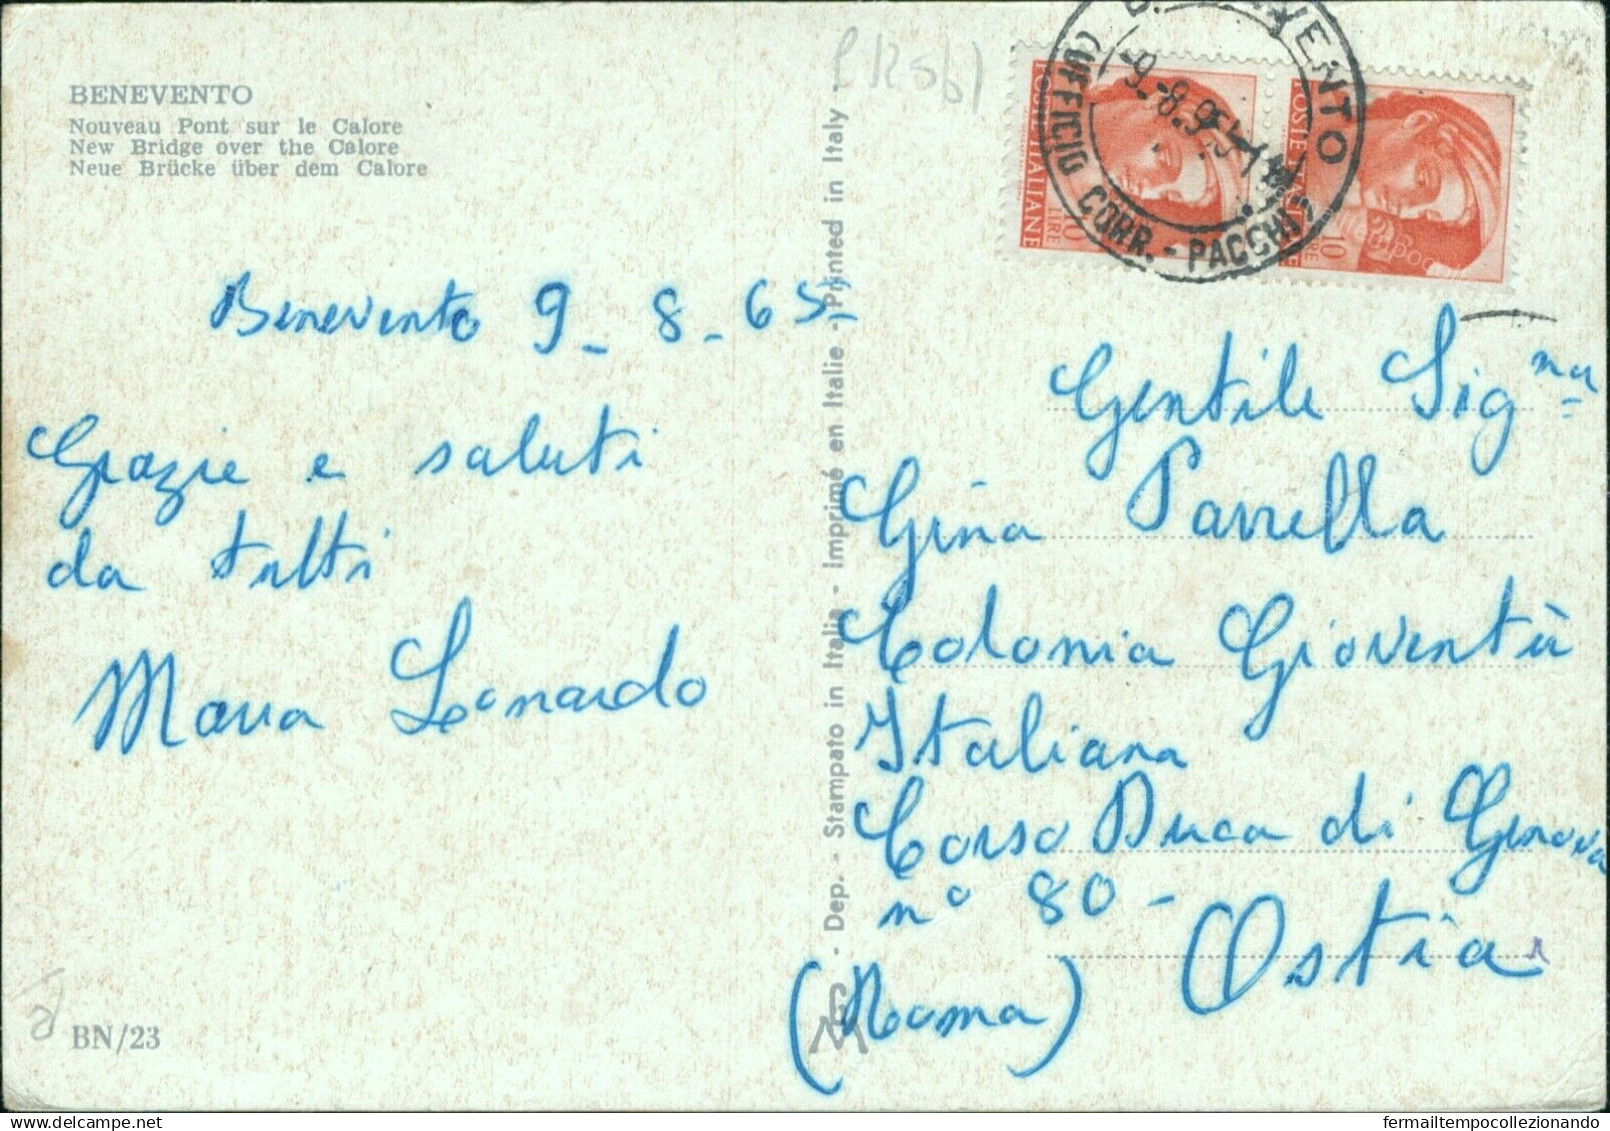 BENEVENTO
Nouveau Pont sur le Calore
New Bridge over the Calore
Neue Brücke über dem Calore
Benevento 9-8-65
Grazie e saluti
da tutti
Maria Leonardo
BN/23
- Dep. - Stampato in Italia - Imprimé en Italie - Printed in Italy -
POSTE ITALIANE
LIRE
10
LIRE
UFFICIO CORR. - PACCHI
Gentile Sig.na
Gina Parrella
Colonia Gioventù
Italiana
Corso Duca di Genova
n° 80 -
Ostia
(Roma)
fermailtempocollezionando